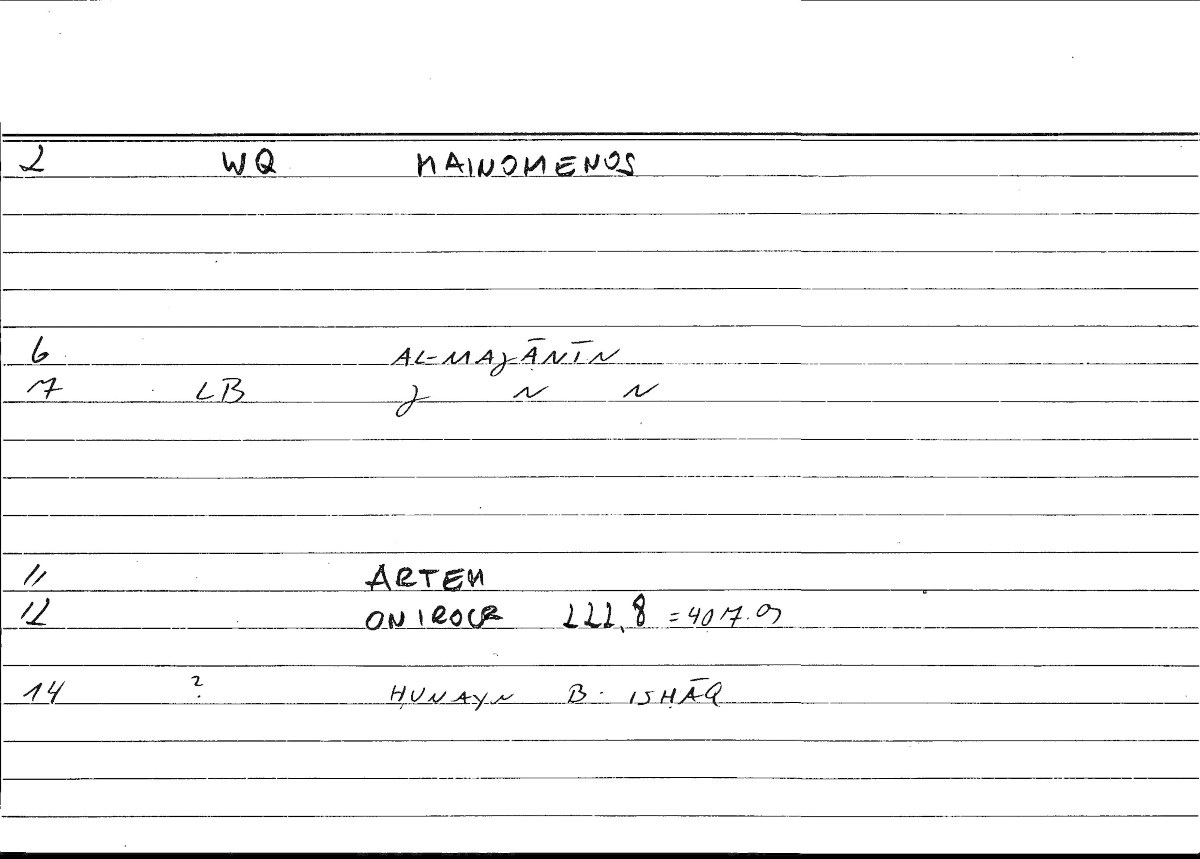 2 WQ MAINOMENOS
6 AL-MAJĀNĪN
7 LB J N N
11 ARTEM
12 ONIROCR 222,8 = 4017.09
14 ? ḤUNAYN B. ISḤĀQ